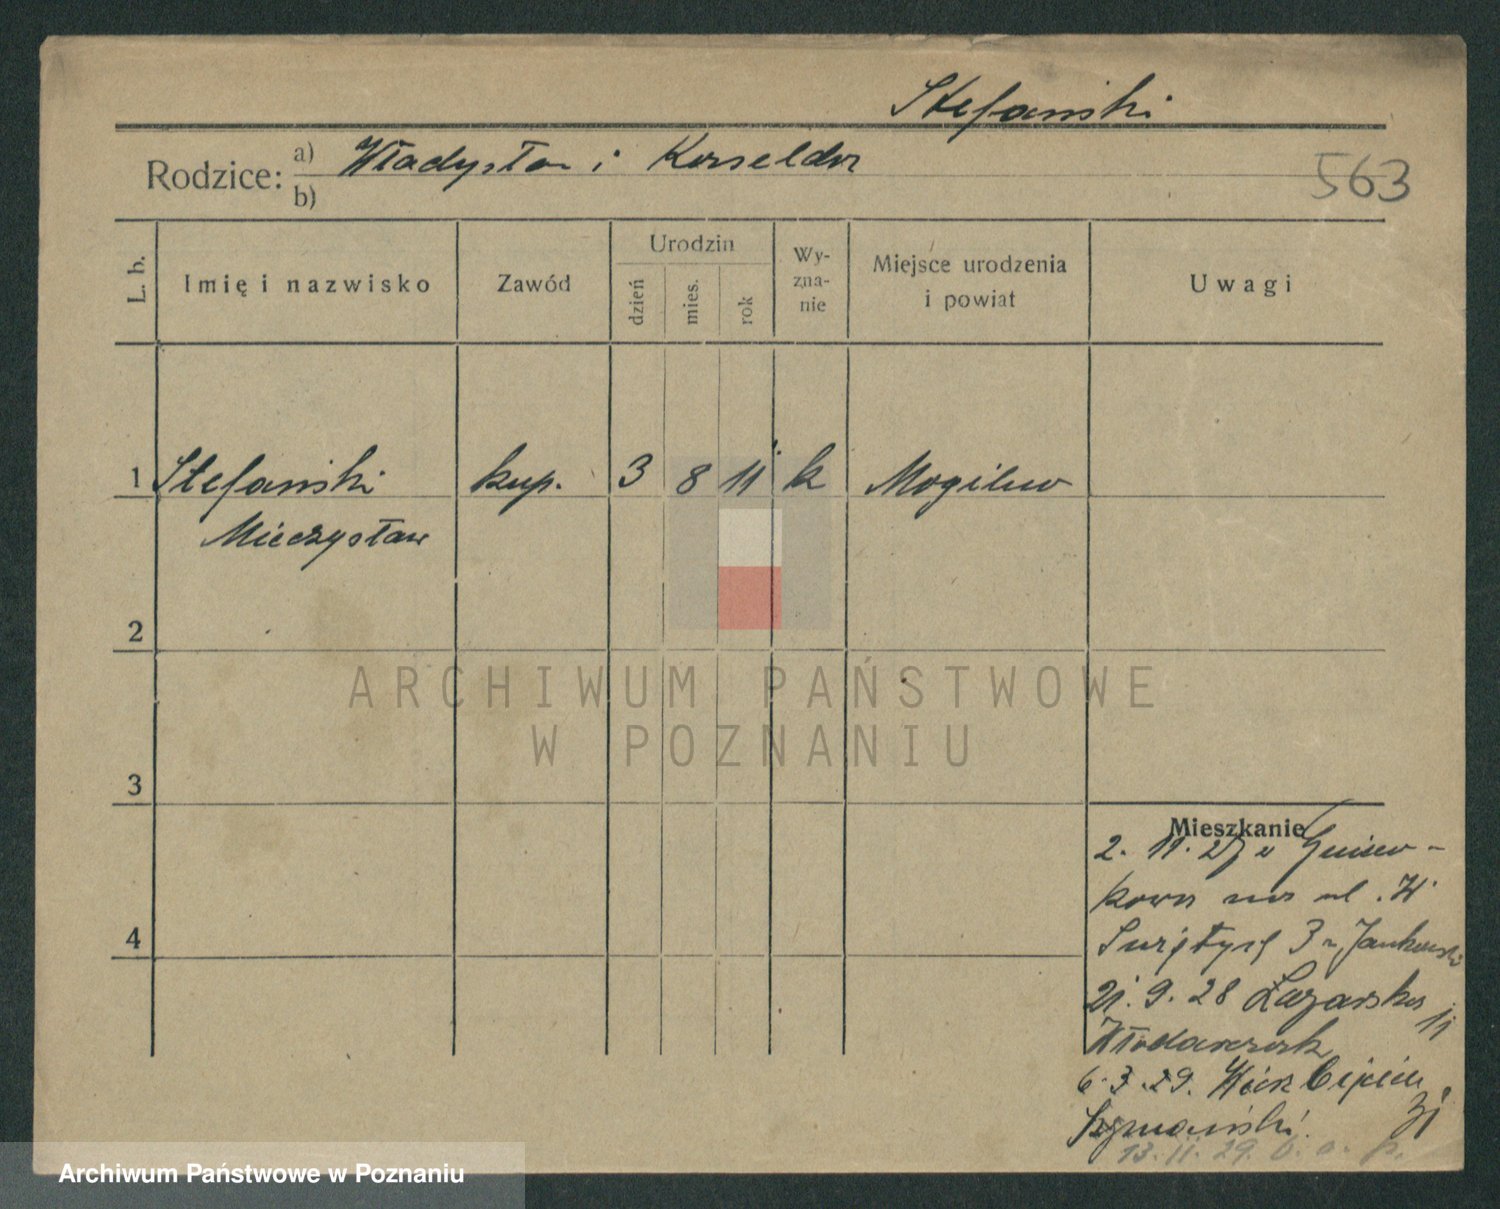 Stefański
Rodzice: a) Władysław i
b)
563
L. b.
Imię i nazwisko
Zawód
Urodzin
dzień
mies.
rok
Wy-
zna-
nie
Miejsce urodzenia
i powiat
Uwagi
1 Stefański kup. 3 8 11 k Mogilno
Mieczysław
2
ARCHIWUM PAŃSTWOWE
W POZNANIU
3
Mieszkanie
2. 11. 27 z Gniew-
kowa na ul. W.
4
Świętych 3 Jankowski
21. 9. 28 Łazarska 11
Włodarczak
6. 3. 29. 31
Szymański
13. 11. 29.
Archiwum Państwowe w Poznaniu